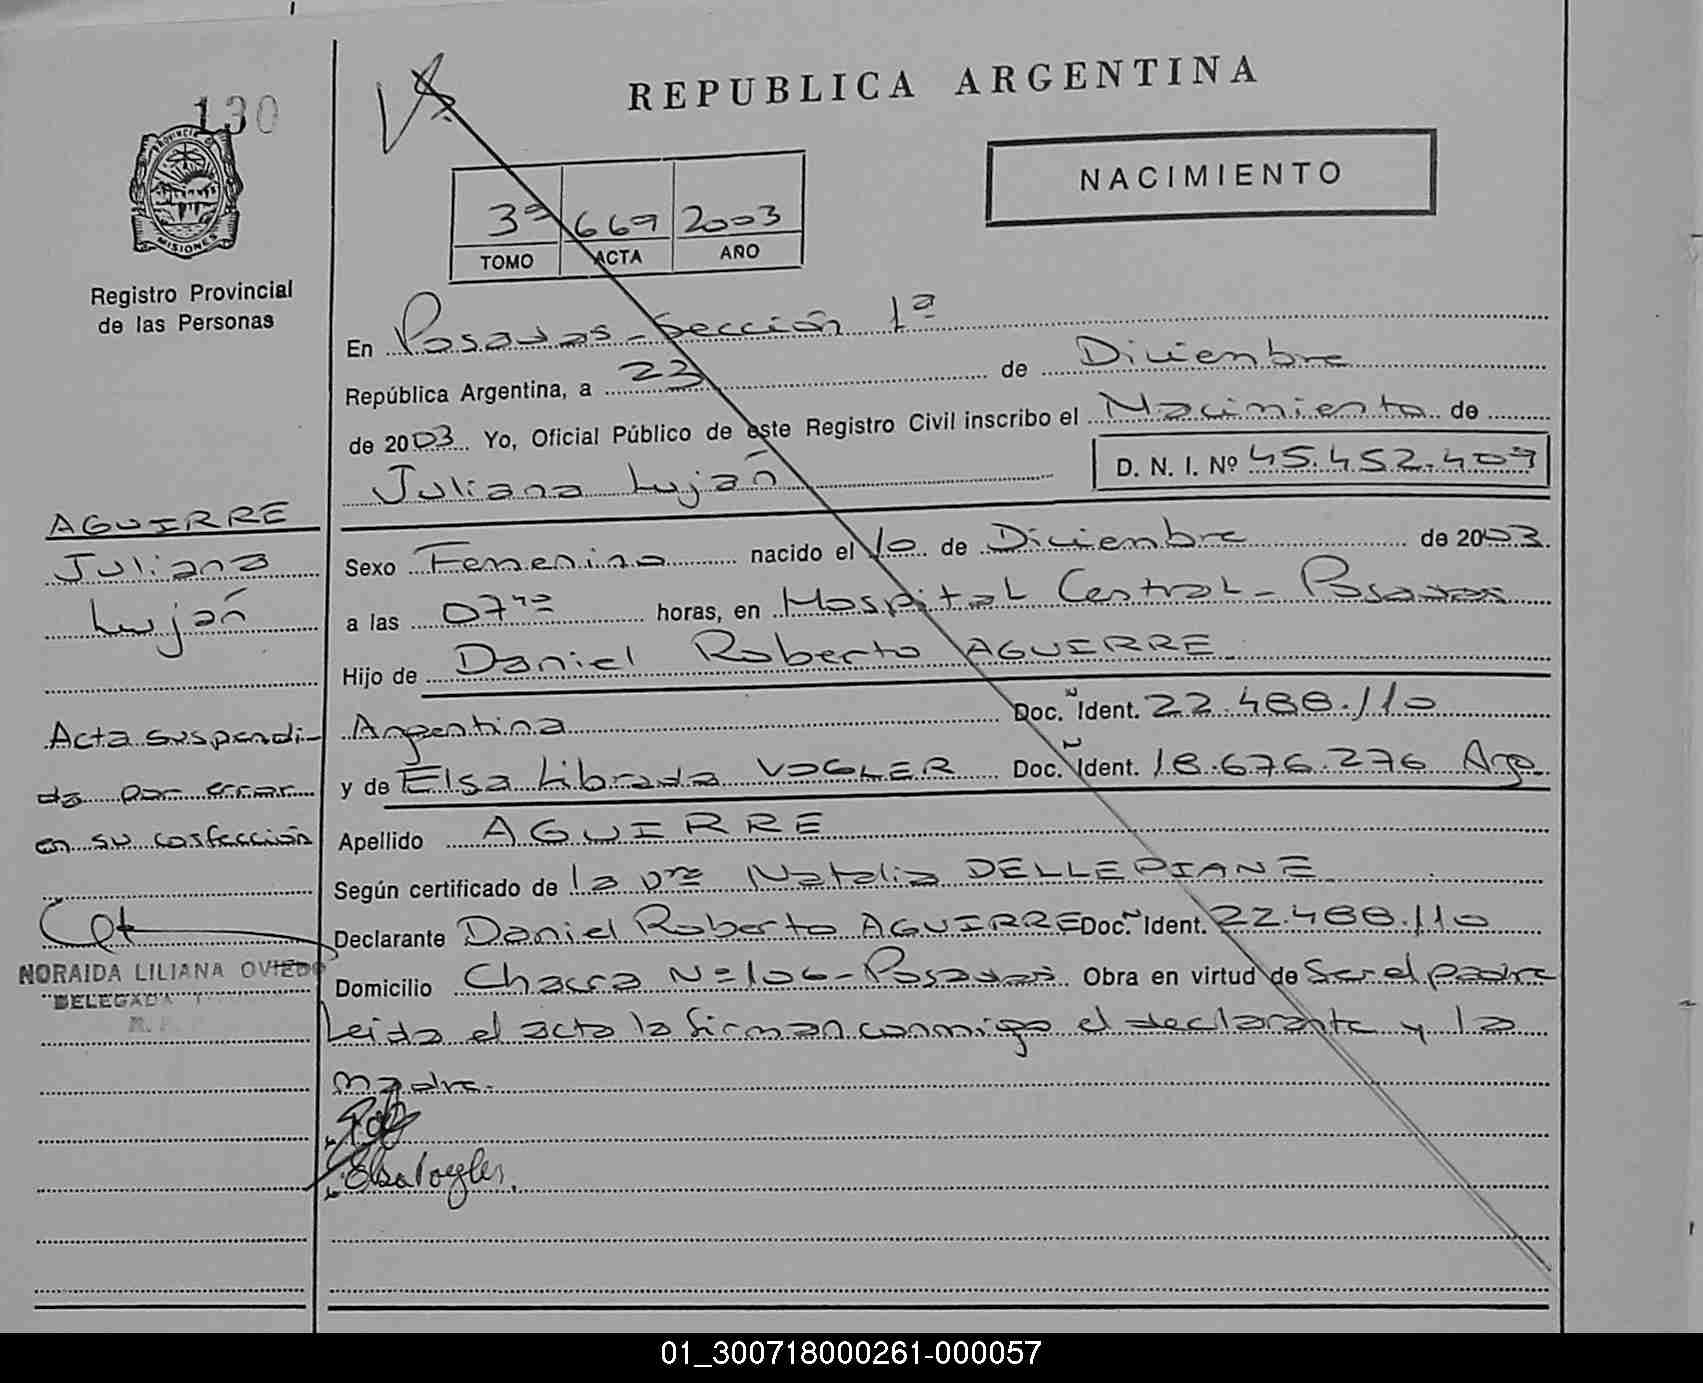 REPUBLICA ARGENTINA
130
NACIMIENTO
PROVINCIA DE
MISIONES
3ª 669 2003
TOMO ACTA AÑO
Registro Provincial
de las Personas
En Posadas - Sección 1ª
República Argentina, a 23 de Diciembre
de 2003 Yo, Oficial Público de este Registro Civil inscribo el Nacimiento de
Juliana Luján D. N. I. Nº 45.452.409
AGUIRRE
Juliana
Luján
Sexo Femenino nacido el 10 de Diciembre de 2003
a las 07 horas, en Hospital Central - Posadas
Hijo de Daniel Roberto AGUIRRE
Argentina Doc. Ident. 22.488.110
y de Elsa Librada VOGLER Doc. Ident. 18.676.276 Arg.
Apellido AGUIRRE
Según certificado de la Dra Natalia DELLEPIANE
Declarante Daniel Roberto AGUIRRE Doc. Ident. 22.488.110
Domicilio Chacra Nº 106 - Posadas Obra en virtud de Ser el padre
Leida el acta la firman conmigo el declarante y la
madre.
Elsa Vogler
Acta suspendi-
da por error
en su confección
NORAIDA LILIANA OVIEDO
DELEGADA
01_300718000261-000057